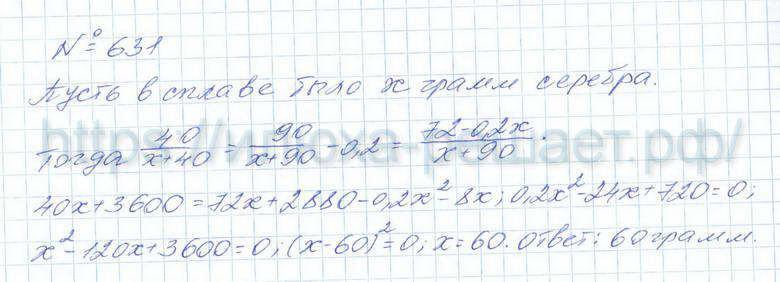 № 631
Пусть в сплаве было x грамм серебра.
Тогда 40/(x+40) = 90/(x+90) - 0,2 = (72-0,2x)/(x+90).
40x+3600=72x+2880-0,2x²-8x; 0,2x²-24x+720=0;
x²-120x+3600=0; (x-60)²=0; x=60. Ответ: 60 грамм.
https://ипоха-решает.рф/